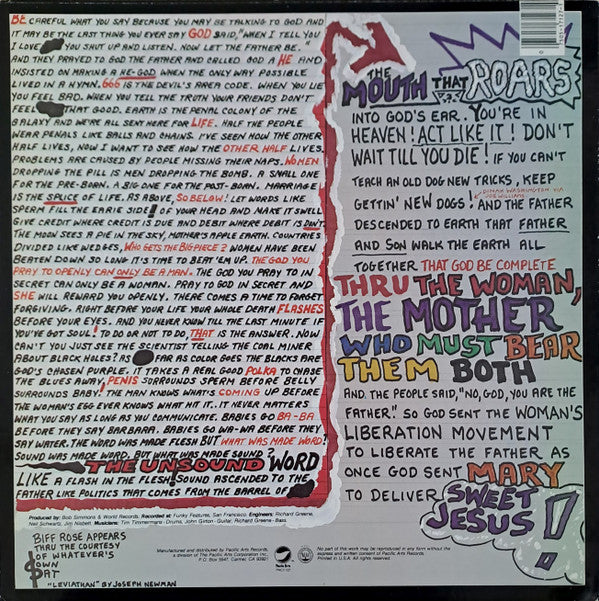 BE CAREFUL WHAT YOU SAY BECAUSE YOU MAY BE TALKING TO GOD AND
IT MAY BE THE LAST THING YOU EVER SAY GOD SAID, "WHEN I TELL YOU
I LOVE YOU SHUT UP AND LISTEN. NOW LET THE FATHER BE."
AND THEY PRAYED TO GOD THE FATHER AND CALLED GOD A HE AND
INSISTED ON MAKING A HE-GOD WHEN THE ONLY WAY POSSIBLE
LIVED IN A HYMN. 666 IS THE DEVIL'S AREA CODE. WHEN YOU LIE
YOU FEEL BAD. WHEN YOU TELL THE TRUTH YOUR FRIENDS DON'T
FEEL THAT GOOD. EARTH IS THE PENAL COLONY OF THE
GALAXY AND WE'RE ALL SENT HERE FOR LIFE. HALF THE PEOPLE
WEAR PENALS LIKE BALLS AND CHAINS. I'VE SEEN HOW THE OTHER
HALF LIVES, NOW I WANT TO SEE HOW THE OTHER HALF LIVES.
PROBLEMS ARE CAUSED BY PEOPLE MISSING THEIR NAPS. WOMEN
DROPPING THE PILL IS MEN DROPPING THE BOMB. A SMALL ONE
FOR THE PRE-BORN. A BIG ONE FOR THE POST-BORN. MARRIAGE
IS THE SPICE OF LIFE. AS ABOVE, SO BELOW! LET WORDS LIKE
SPERM FILL THE EARIE SIDE OF YOUR HEAD AND MAKE IT SWELL
GIVE CREDIT WHERE CREDIT IS DUE AND DEBIT WHERE DEBIT IS DON'T.
THE MOON SEES A PIE IN THE SKY, MOTHER'S APPLE EARTH. COUNTRIES
DIVIDED LIKE WEDGES, WHO GETS THE BIG PIECE? WOMEN HAVE BEEN
BEATEN DOWN SO LONG IT'S TIME TO BEAT 'EM UP. THE GOD YOU
PRAY TO OPENLY CAN ONLY BE A MAN. THE GOD YOU PRAY TO IN
SECRET CAN ONLY BE A WOMAN. PRAY TO GOD IN SECRET AND
SHE WILL REWARD YOU OPENLY. THERE COMES A TIME TO FORGET
FORGIVING. RIGHT BEFORE YOUR LIFE YOUR WHOLE DEATH FLASHES
BEFORE YOUR EYES. AND YOU NEVER KNOW TILL THE LAST MINUTE IF
YOU'VE GOT SOUL! TO DO OR NOT TO DO, THAT IS THE ANSWER. NOW
CAN'T YOU JUST SEE THE SCIENTIST TELLING THE COAL MINER
ABOUT BLACK HOLES? AS FAR AS COLOR GOES THE BLACKS ARE
GOD'S CHOSEN PURPLE. IT TAKES A REAL GOOD POLKA TO CHASE
THE BLUES AWAY, PENIS SURROUNDS SPERM BEFORE BELLY
SURROUNDS BABY! THE MAN KNOWS WHATS COMING UP BEFORE
THE WOMAN'S EGG EVER KNOWS WHAT HIT IT. IT NEVER MATTERS
WHAT YOU SAY AS LONG AS YOU COMMUNICATE. BABIES GO BA-BA
BEFORE THEY SAY BARBARA. BABIES GO WA-WA BEFORE THEY
SAY WATER. THE WORD WAS MADE FLESH BUT WHAT WAS MADE WORD?
SOUND WAS MADE WORD. BUT WHAT WAS MADE SOUND?
THE UNSOUND WORD
LIKE A FLASH IN THE FLESH! SOUND ASCENDED TO THE
FATHER LIKE POLITICS THAT COMES FROM THE BARREL OF
THE
MOUTH THAT ROARS
INTO GOD'S EAR. YOU'RE IN
HEAVEN! ACT LIKE IT! DON'T
WAIT TILL YOU DIE! IF YOU CAN'T
TEACH AN OLD DOG NEW TRICKS, KEEP
DINAH WASHINGTON VIA
JOE WILLIAMS
GETTIN' NEW DOGS! AND THE FATHER
DESCENDED TO EARTH THAT FATHER
AND SON WALK THE EARTH ALL
TOGETHER THAT GOD BE COMPLETE
THRU THE WOMAN,
THE MOTHER
WHO MUST BEAR
THEM BOTH
AND THE PEOPLE SAID, "NO, GOD, YOU ARE THE
FATHER." SO GOD SENT THE WOMAN'S
LIBERATION MOVEMENT
TO LIBERATE THE FATHER AS
ONCE GOD SENT MARY
TO DELIVER SWEET
JESUS!
Produced by: Bob Simmons & World Records. Recorded at: Funky Features, San Francisco. Engineers: Richard Greene,
Neil Schwartz, Jim Nisbett. Musicians: Tim Timmermans - Drums, John Girton - Guitar, Richard Greene - Bass.
BIFF ROSE APPEARS
THRU THE COURTESY
OF WHATEVER'S
DOWN
PAT
"LEVIATHAN" BY JOSEPH NEWMAN
Manufactured and distributed by Pacific Arts Records,
a division of The Pacific Arts Corporation Inc.,
P.O. Box 5547, Carmel, CA 93921.
Pacific Arts
No part of this work may be reproduced in any form without the
express and written consent of Pacific Arts Records.
Printed in U.S.A. All rights reserved.